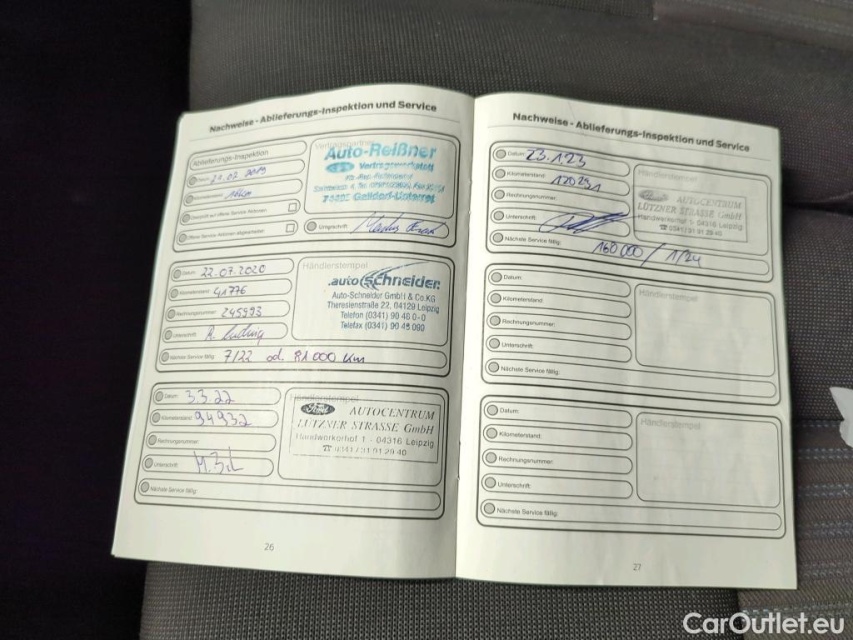 Nachweise - Ablieferungs-Inspektion und Service
Ablieferungs-Inspektion
Datum
Auto-Reißner
Vertragswerkstatt
Gaildorf-Unterrot
Unterschrift:
Datum: 22.07.2020
Händlerstempel
Kilometerstand: 41776
auto schneider.
Auto-Schneider GmbH & Co.KG
Rechnungsnummer: 245993
Theresienstraße 22, 04129 Leipzig
Telefon (0341) 90 46 0-0
Unterschrift:
Telefax (0341) 90 45 099
Nächste Service fällig: 7/22 od. 81000 km
Datum: 3.3.22
Händlerstempel
Kilometerstand: 94932
Ford AUTOCENTRUM
LÜTZNER STRASSE GmbH
Rechnungsnummer:
Handwerkerhof 1 - 04316 Leipzig
Unterschrift:
☎ 0341/31 91 29 40
Nächste Service fällig:
26
Nachweise - Ablieferungs-Inspektion und Service
Datum: 23.1.23
Händlerstempel
Kilometerstand:
Rechnungsnummer:
AUTOCENTRUM
LÜTZNER STRASSE GmbH
Unterschrift:
Handwerkerhof 1 - 04316 Leipzig
☎ 0341/31 91 29 40
Nächste Service fällig: 160 000 / 1/24
Datum:
Händlerstempel
Kilometerstand:
Rechnungsnummer:
Unterschrift:
Nächste Service fällig:
Datum:
Händlerstempel
Kilometerstand:
Rechnungsnummer:
Unterschrift:
Nächste Service fällig:
27
CarOutlet.eu